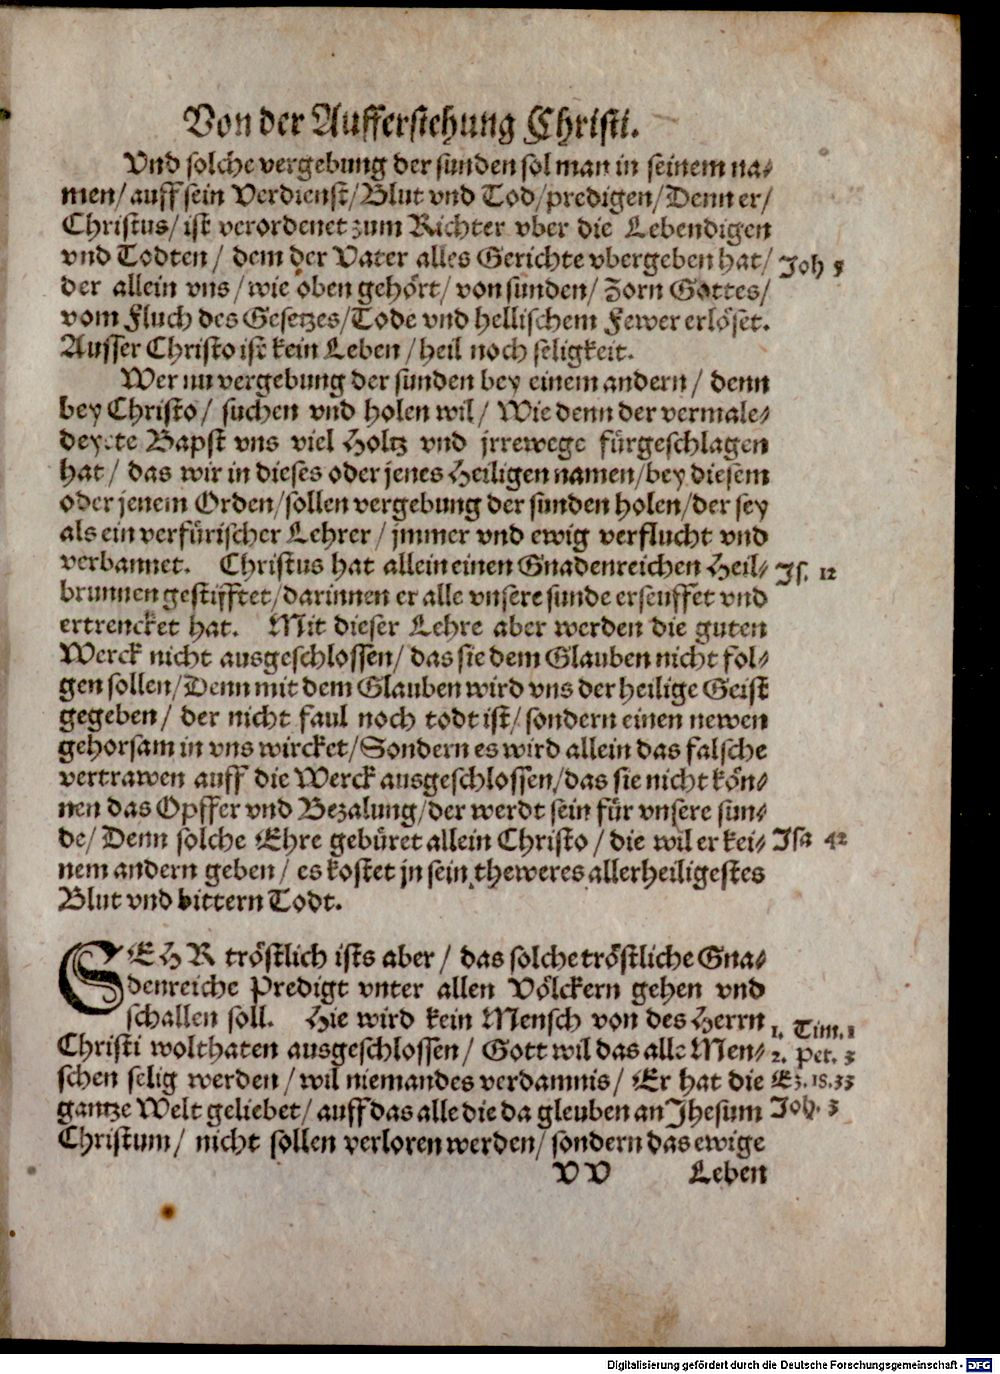 Von der Aufferstehung Christi.
Vnd solche vergebung der sünden sol man in seinem na⸗
men/ auff sein Verdienst/ Blut vnd Tod/ predigen/ Denn er/
Christus/ ist verordenet zum Richter vber die Lebendigen
vnd Todten/ dem der Vater alles Gerichte vbergeben hat/ Joh 5
der allein vns/ wie oben gehört/ von sünden/ Zorn Gottes/
vom Fluch des Gesetzes/ Tode vnd hellischem Fewer erlöset.
Ausser Christo ist kein Leben/ heil noch seligkeit.
Wer nu vergebung der sünden bey einem andern/ denn
bey Christo/ suchen vnd holen wil/ Wie denn der vermale⸗
deyete Bapst vns viel Holtz vnd jrrewege fürgeschlagen
hat/ das wir in dieses oder jenes Heiligen namen/ bey diesem
oder jenem Orden/ sollen vergebung der sünden holen/ der sey
als ein verfürischer Lehrer/ jmmer vnd ewig verflucht vnd
verbannet. Christus hat allein einen Gnadenreichen Heil⸗ Js. 12
brunnen gestifftet/ darinnen er alle vnsere sünde erseuffet vnd
ertrencket hat. Mit dieser Lehre aber werden die guten
Werck nicht ausgeschlossen/ das sie dem Glauben nicht fol⸗
gen sollen/ Denn mit dem Glauben wird vns der heilige Geist
gegeben/ der nicht faul noch todt ist/ sondern einen newen
gehorsam in vns wircket/ Sondern es wird allein das falsche
vertrawen auff die Werck ausgeschlossen/ das sie nicht kön⸗
nen das Opffer vnd Bezalung/ der werdt sein für vnsere sün⸗
de/ Denn solche Ehre gebüret allein Christo/ die wil er kei⸗ Jsa 42
nem andern geben/ es kostet jn sein theweres allerheiligestes
Blut vnd bittern Todt.
SEHR tröstlich ists aber/ das solche tröstliche Gna⸗
denreiche Predigt vnter allen Völckern gehen vnd
schallen soll. Hie wird kein Mensch von des Herrn 1. Tim. 2
Christi wolthaten ausgeschlossen/ Gott wil das alle Men⸗ 2. Pet. 3
schen selig werden/ wil niemandes verdamnis/ Er hat die Ez. 18. 33
gantze Welt geliebet/ auff das alle die da gleuben an Jhesum Joh. 3
Christum/ nicht sollen verloren werden/ sondern das ewige
VV Leben
Digitalisierung gefördert durch die Deutsche Forschungsgemeinschaft - DFG